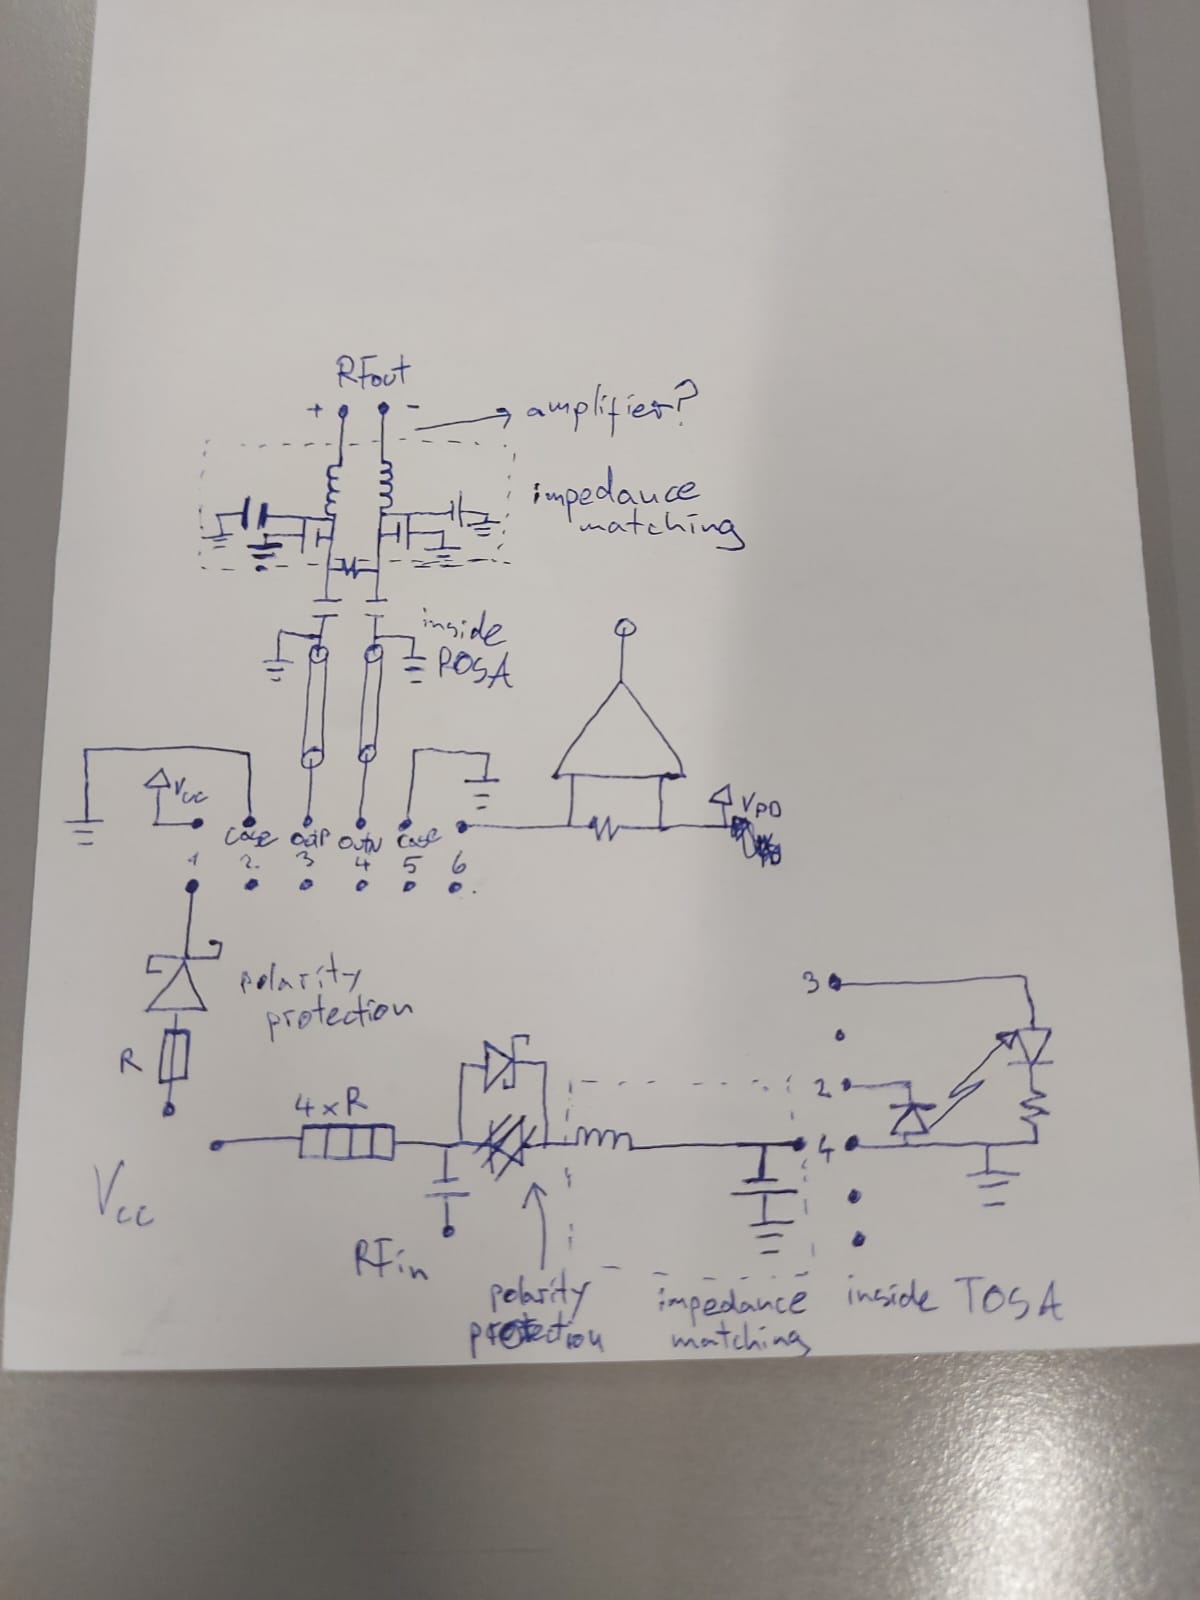 RFout
+ -
amplifier?
impedance
matching
inside
ROSA
Vcc
VPD
case outP outN case
1 2 3 4 5 6
polarity
protection
R
3
2
4xR
4
Vcc
RFin
polarity
protection
impedance
matching
inside TOSA